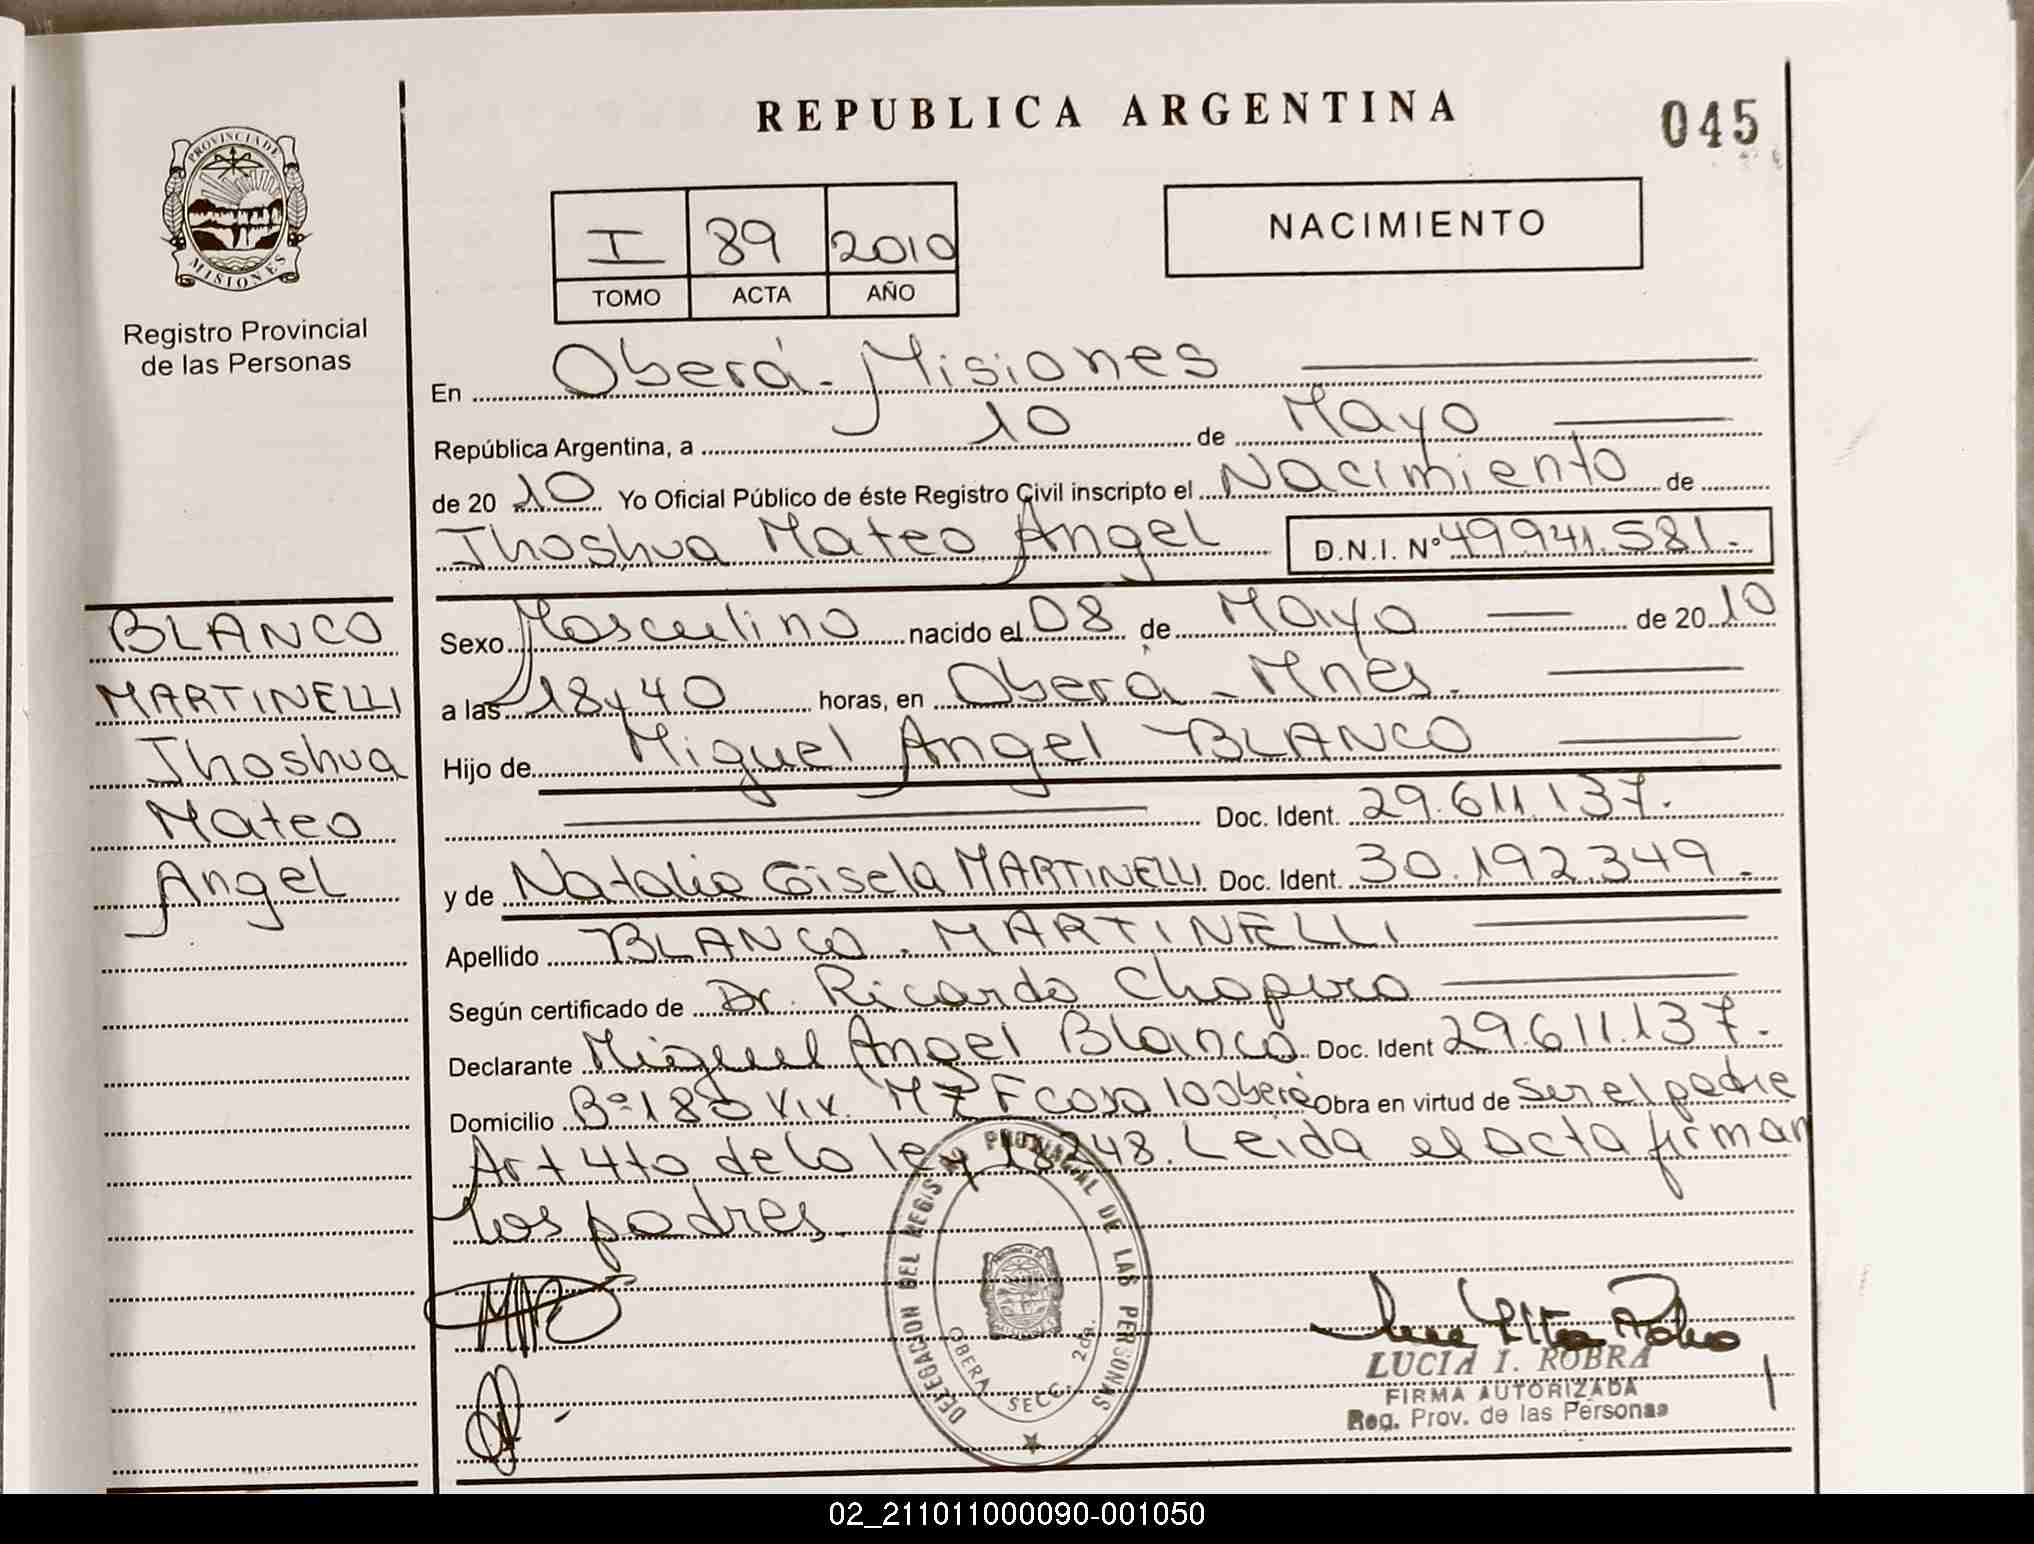 REPUBLICA ARGENTINA
045
PROVINCIA DE
MISIONES
Registro Provincial
de las Personas
I 89 2010
TOMO ACTA AÑO
NACIMIENTO
En Oberá - Misiones
República Argentina, a 10 de Mayo
de 20 10 Yo Oficial Público de éste Registro Civil inscripto el Nacimiento de
Jhoshua Mateo Angel D.N.I. Nº 49941.581.-
BLANCO
MARTINELLI
Jhoshua
Mateo
Angel
Sexo Masculino nacido el 08 de Mayo de 20 10
a las 18y40 horas, en Oberá - Mnes.
Hijo de Miguel Angel BLANCO
Doc. Ident. 29.611.137.
y de Natalia Gisela MARTINELLI Doc. Ident. 30.192.349.
Apellido BLANCO. MARTINELLI
Según certificado de Dr. Ricardo Chapiro
Declarante Miguel Angel Blanco Doc. Ident 29.611.137.
Domicilio Bº 180 Viv. Mz F casa 10 Oberá Obra en virtud de ser el padre
Art 4to de la ley 18248. Leida el acta firman
los padres.
DELEGACION DEL REGISTRO PROVINCIAL DE LAS PERSONAS
OBERA SECC. 2da.
LUCIA I. ROBRA
FIRMA AUTORIZADA
Reg. Prov. de las Personas
02_211011000090-001050